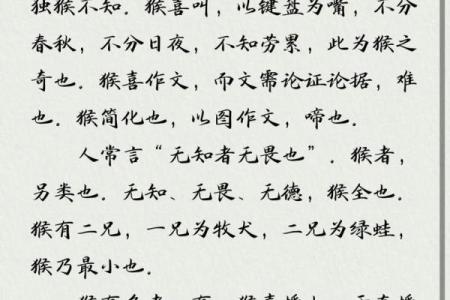 独猴不知．猴喜叫，以键盘为嘴，不分
春秋，不分日夜，不知劳累，此为猴之
奇也．猴喜作文，而文需论证论据，难
也．猴简化也，以图作文，啼也．
人常言“无知者无畏也”．猴者，
另类也．无知、无畏、无德，猴全也．
猴有二兄，一兄为牧犬，二兄为绿蛙，
猴乃最小也．